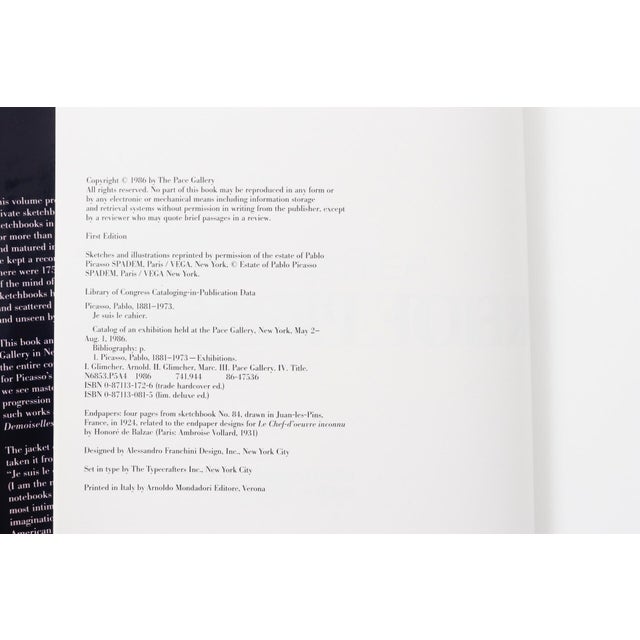 his volume pr
ivate sketchb
etchbooks in
or more than
nd matured in
e kept a reco
here were 175
of the mind of
ketchbooks h
and scattered
and unseen by
This book an
Gallery in Ne
the entire co
for Picasso's
we see maste
progression
such works a
Demoiselles
The jacket
taken it from
"Je suis le c
(I am the n
notebooks
most intim
imaginatio
American
Copyright © 1986 by The Pace Gallery
All rights reserved. No part of this book may be reproduced in any form or
by any electronic or mechanical means including information storage
and retrieval systems without permission in writing from the publisher, except
by a reviewer who may quote brief passages in a review.
First Edition
Sketches and illustrations reprinted by permission of the estate of Pablo
Picasso SPADEM, Paris / VEGA, New York. © Estate of Pablo Picasso
SPADEM, Paris / VEGA New York.
Library of Congress Cataloging-in-Publication Data
Picasso, Pablo, 1881–1973.
Je suis le cahier.
Catalog of an exhibition held at the Pace Gallery, New York, May 2–
Aug. 1, 1986.
Bibliography: p.
1. Picasso, Pablo, 1881-1973—Exhibitions.
I. Glimcher, Arnold. II. Glimcher, Marc. III. Pace Gallery. IV. Title.
N6853.P5A4 1986 741.944 86-47536
ISBN 0-87113-172-6 (trade hardcover ed.)
ISBN 0-87113-081-5 (lim. deluxe ed.)
Endpapers: four pages from sketchbook No. 84, drawn in Juan-les-Pins,
France, in 1924, related to the endpaper designs for Le Chef-d'oeuvre inconnu
by Honoré de Balzac (Paris: Ambroise Vollard, 1931)
Designed by Alessandro Franchini Design, Inc., New York City
Set in type by The Typecrafters Inc., New York City
Printed in Italy by Arnoldo Mondadori Editore, Verona